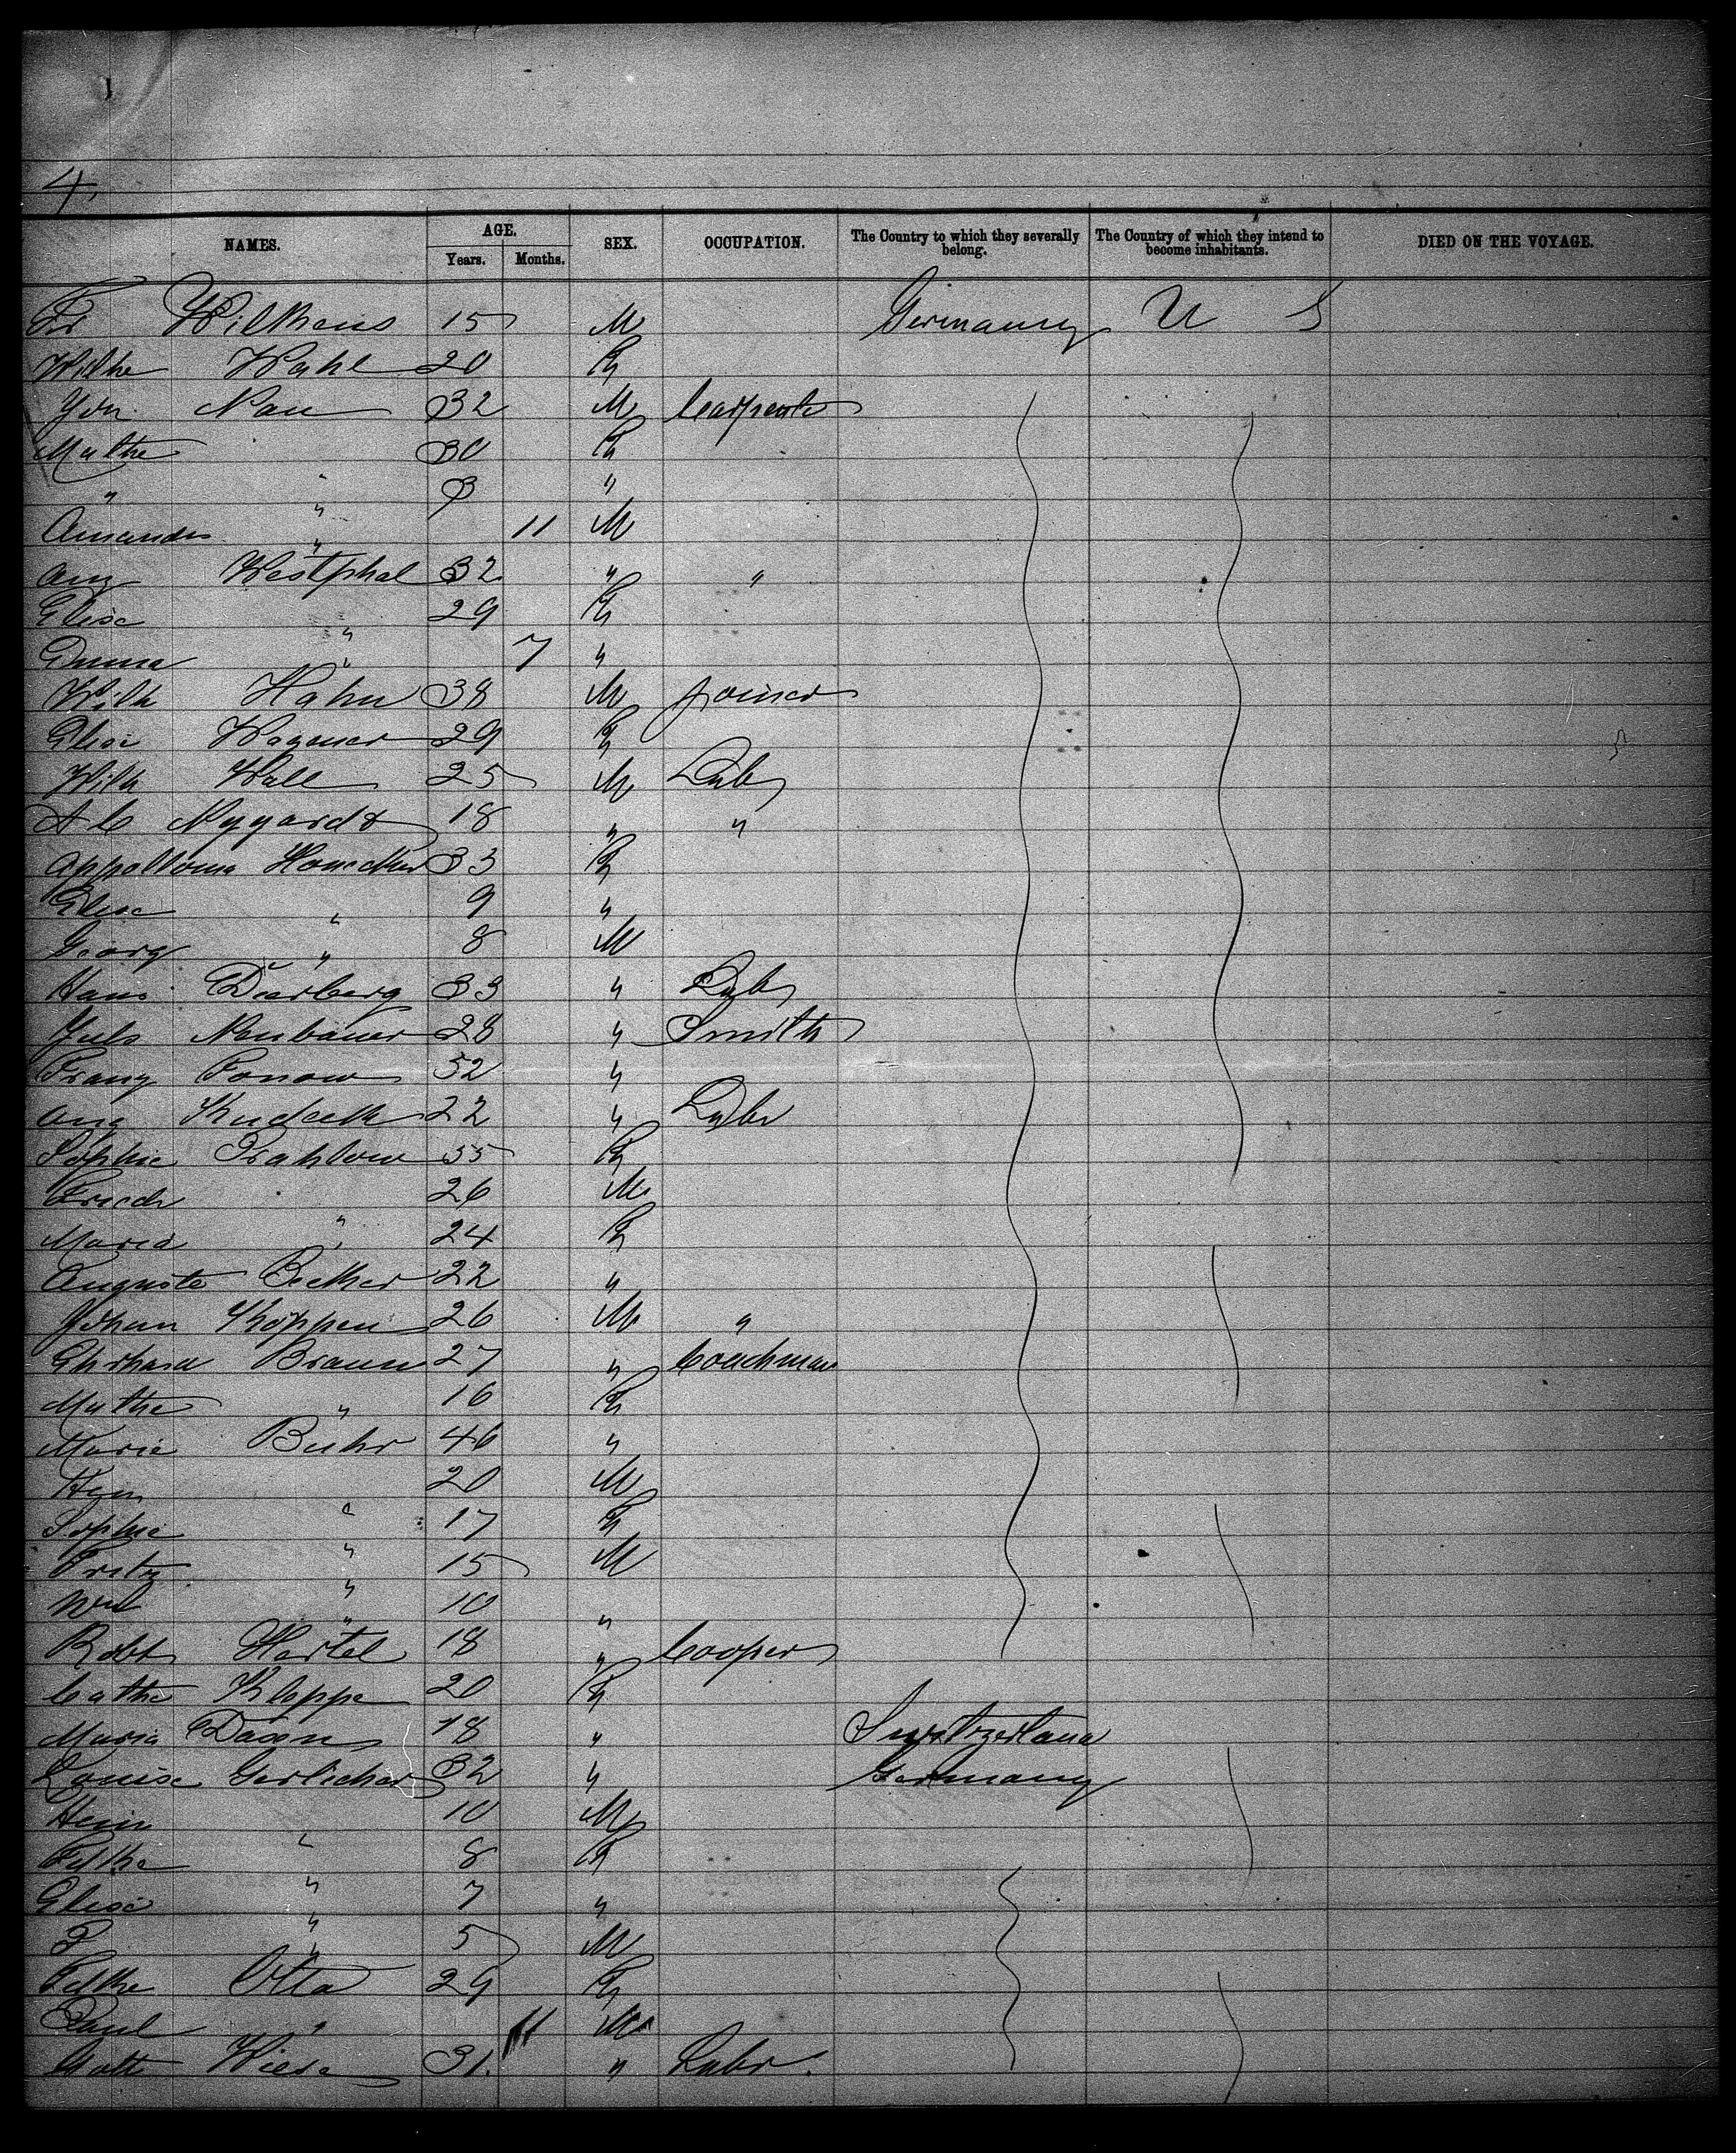 4,
NAMES. AGE. SEX. OCCUPATION. The Country to which they severally belong. The Country of which they intend to become inhabitants. DIED ON THE VOYAGE.
Years. Months.
Fr Wilkens 15 M Germany U S
Wilhe Wahl 20 F
Joh Nau 32 M Carpenter
Mathe 30 F
" " 3 "
Amandus " 11 M
Aug Westphal 32 " "
Elise " 29 F
Emma " 7 "
Wilh Hahn 38 M Joiner
Elise Wagener 29 F
Wilh Wall 25 M Labr
A C Nygardt 18 " "
Appollonia 33 F
Elise " 9 "
Georg " 8 M
Hans Dierberg 33 " Labr
Juls Neubauer 28 " Smith
Franz Ponow 52 "
Aug 22 " Labr
Sophie Prahlow 55 F
Friedr " 26 M
Maria " 24 F
Auguste Becker 22 "
Johan Köppen 26 M "
Ehrhard Braun 27 " Coachman
Mathe " 16 F
Marie Buhr 46 "
Hein " 20 M
Sophie " 17 F
Fritz " 15 M
Wm " 10 "
Robt Hertel 18 " Cooper
Cathe Kloppe 20 F
Maria Daxen 18 " Switzerland
Louise Gerlicher 32 " Germany
Hein " 10 M
" 8 F
Elise " 7 "
F " 5 M
Otto 29 F
Paul " 11 M
Wiese 31. " Labr.